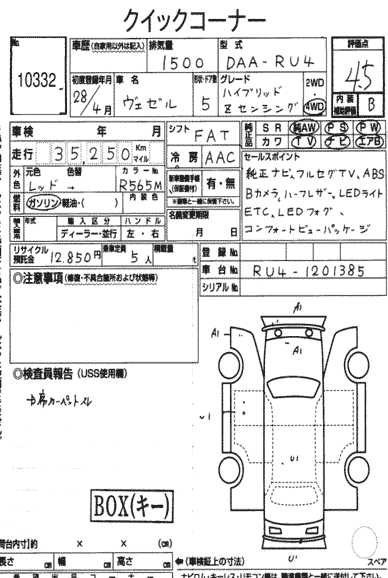 クイックコーナー
No.
10332
車歴(自家用以外は記入) 排気量 型式
1500 DAA-RU4
評価点
4.5
初度登録年月 車名 形状・ドア数 グレード
28/4月 ヴェゼル 5 ハイブリッド Zセンシング 2WD・4WD
内装 補助評価 B
車検 年 月
シフト FAT
純正品 SR 純AW PS PW
カワ TV ナビ エアB
走行 35,250 Km マイル
冷房 AAC
セールスポイント
純正ナビ,フルセグTV,ABS
Bカメラ,ハーフレザー,LEDライト
ETC,LEDフォグ,
コンフォートビューパッケージ
外色 元色 色替 カラーNo.
レッド → R565M
燃料 ガソリン・軽油・( ) 内装色
有・無
名義変更期限
月 日
形式 輸入区分 ハンドル
ディーラー・並行 左・右
リサイクル預託金 12,850円 乗車定員 5人 積載量 t
登録No.
車台No. RU4-1201385
シリアルNo.
◎注意事項(修復・不具合箇所および状態等)
◎検査員報告(USS使用欄)
BOX(キー)
A1
A1
A1
U1
U1
U1
荷台内寸]約 × × (cm)
長さ cm 幅 cm 高さ cm
←(車検証上の寸法)
スペア